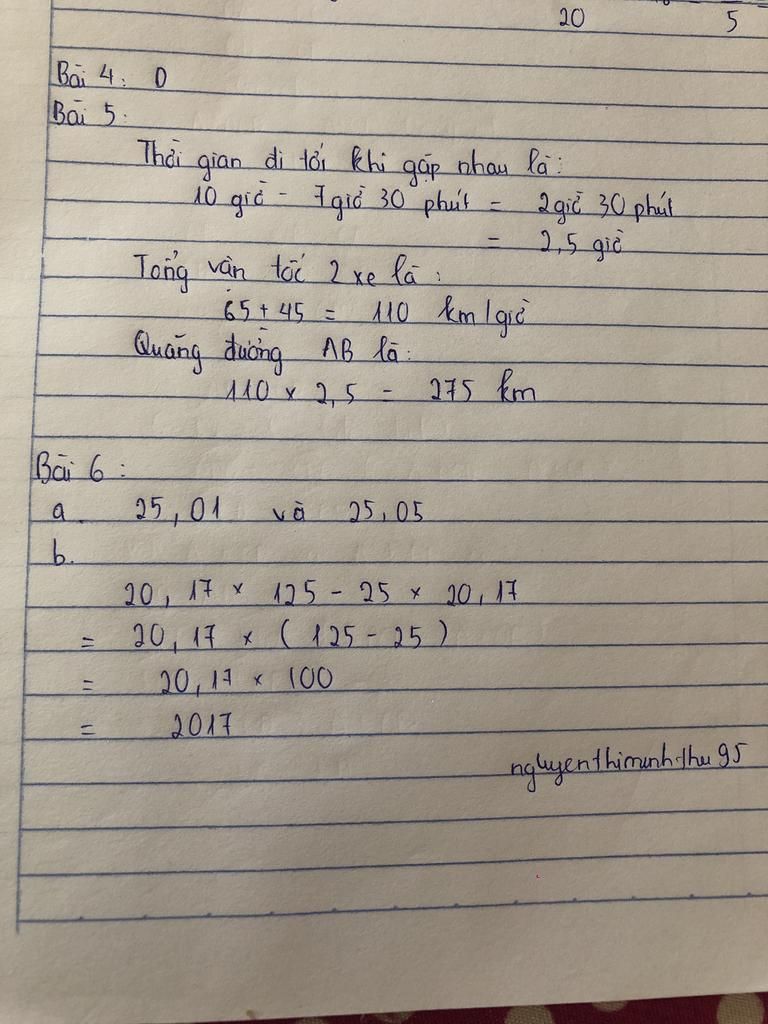 20 5
Bài 4: D
Bài 5:
Thời gian đi tới khi gặp nhau là:
10 giờ - 7 giờ 30 phút = 2 giờ 30 phút
= 2,5 giờ
Tổng vận tốc 2 xe là:
65 + 45 = 110 km/giờ
Quãng đường AB là:
110 x 2,5 = 275 km
Bài 6:
a. 25,01 và 25,05
b.
20,17 x 125 - 25 x 20,17
= 20,17 x (125 - 25)
= 20,17 x 100
= 2017
nguyenthiminhthu95